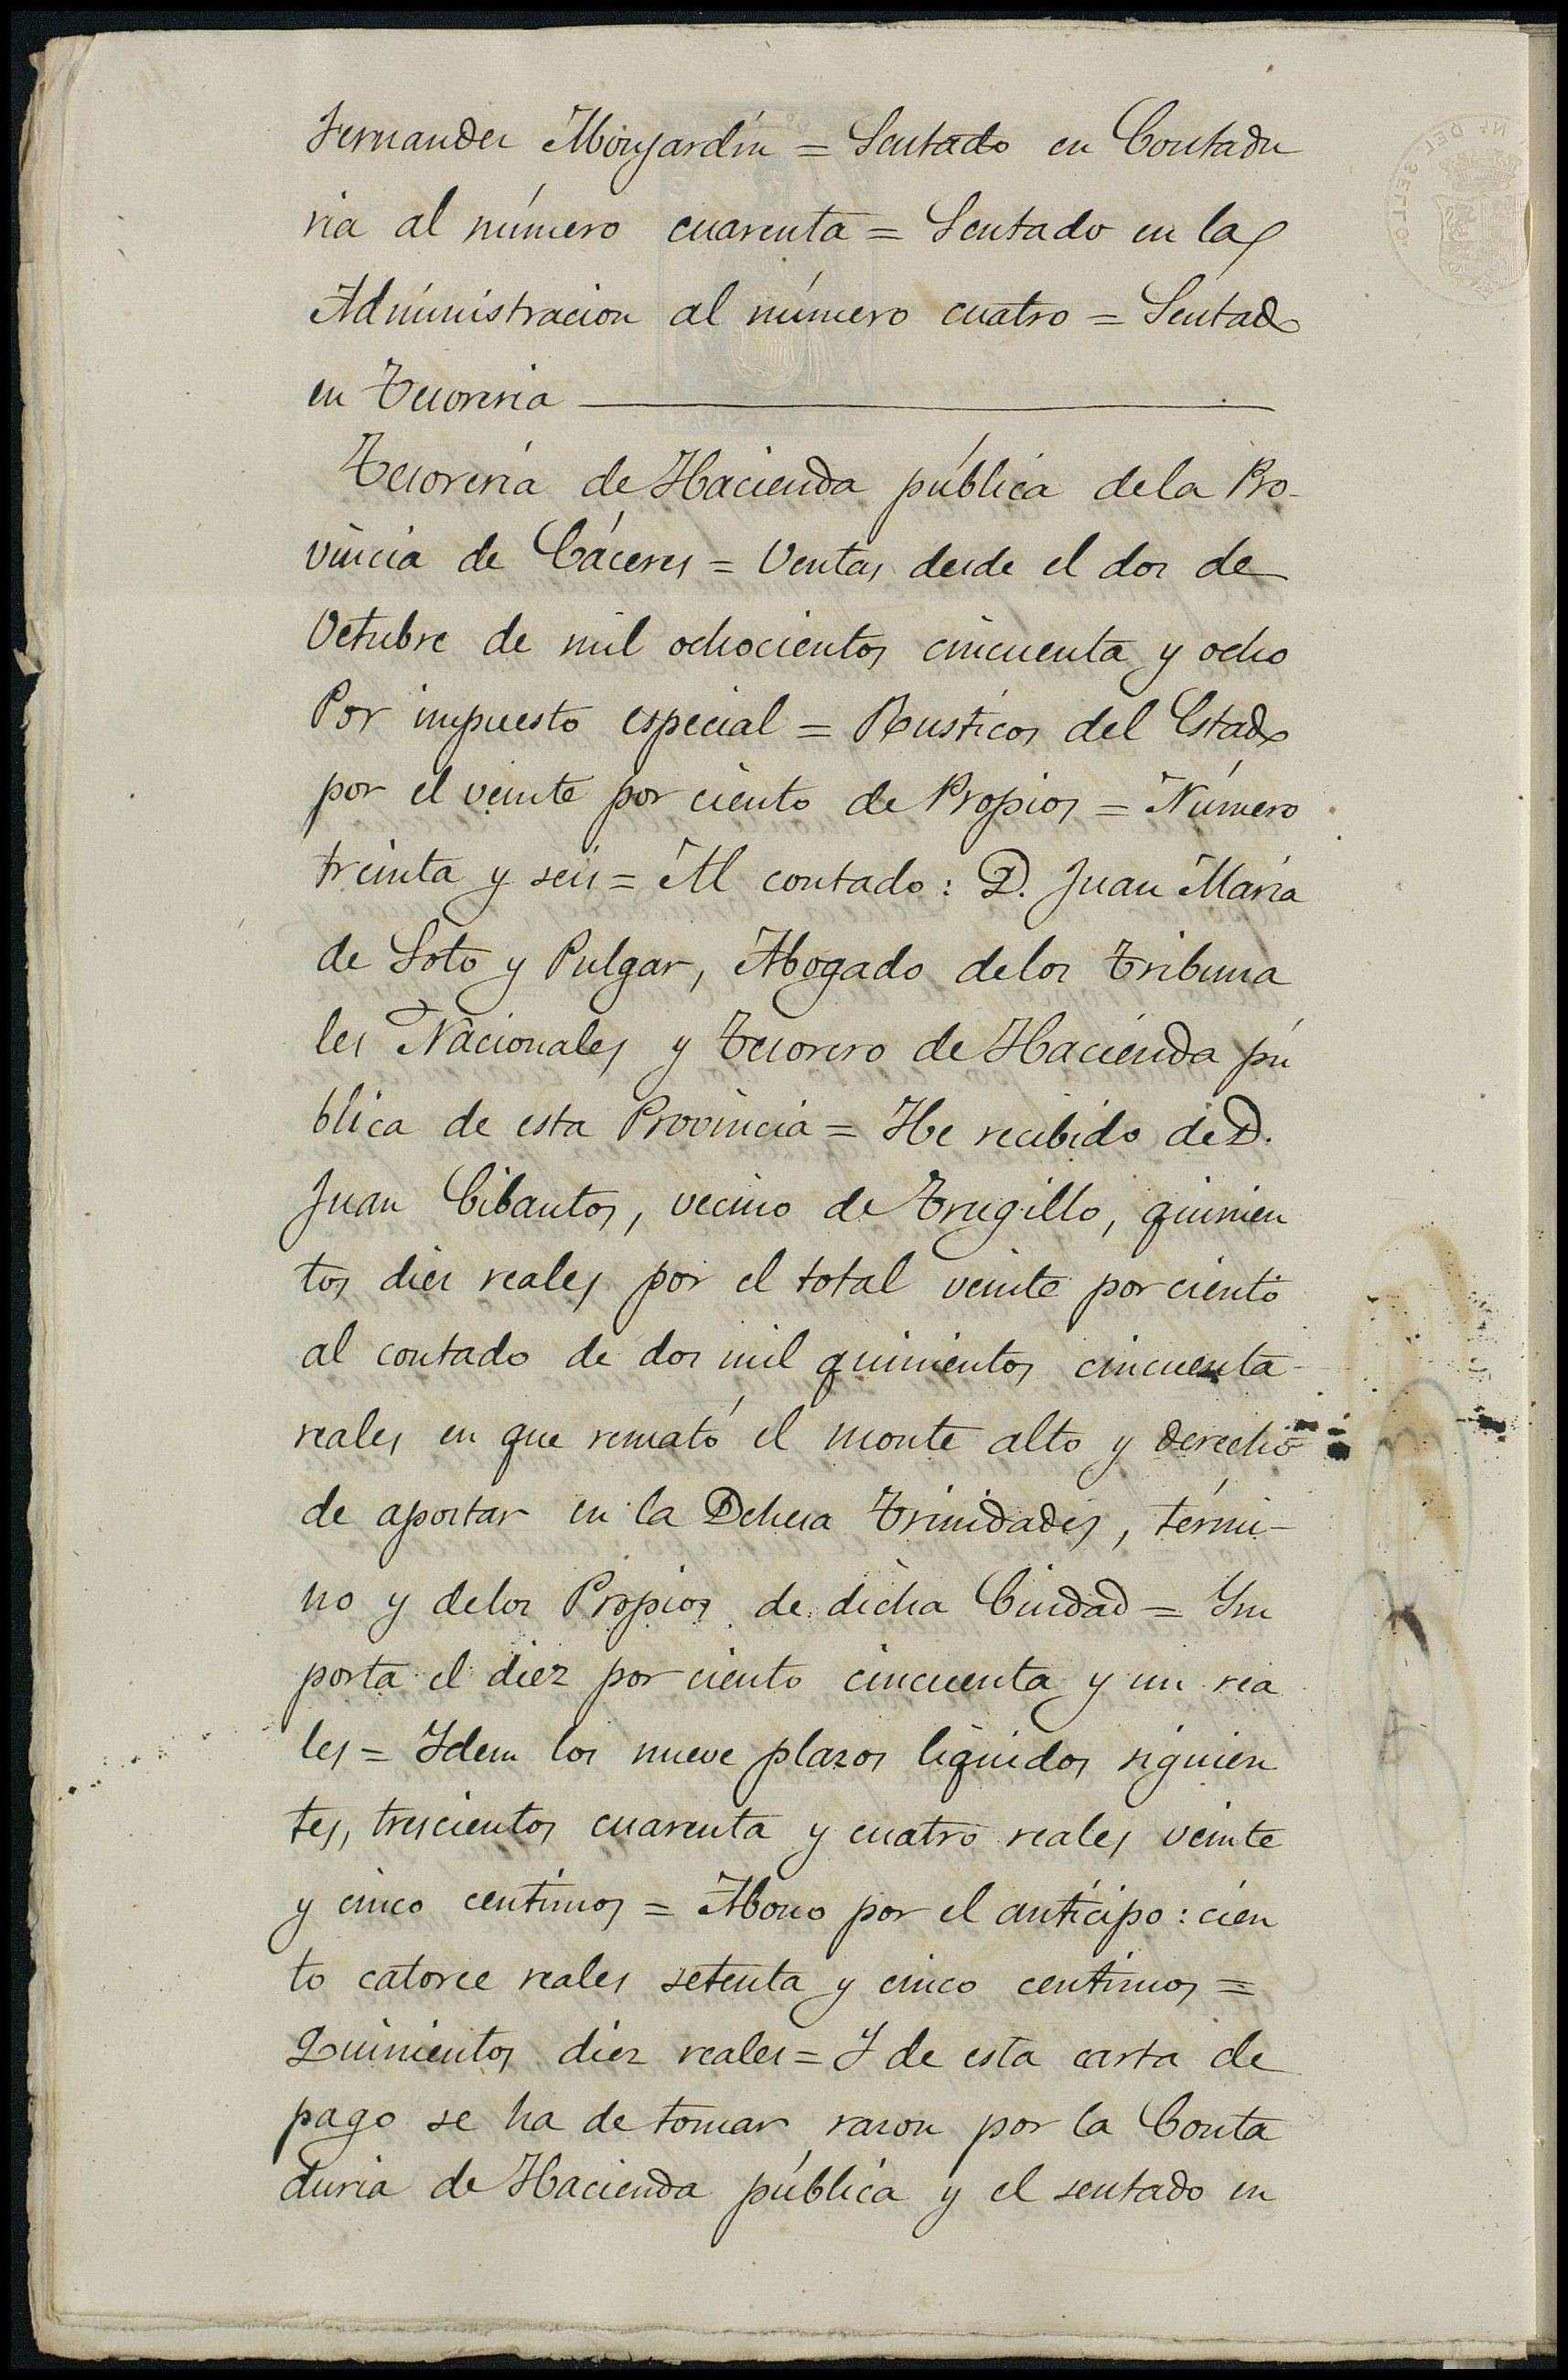 Fernandez Monjardín = Sentado en Contadu
ria al número cuarenta = Sentado en la
Administracion al número cuatro = Sentado
en Tesoreria
Tesorería de Hacienda pública dela Pro-
vincia de Cáceres = Ventas desde el dos de
Octubre de mil ochocientos cincuenta y ocho
Por impuesto especial = Rusticos del Estado
por el veinte por ciento de Propios = Número
treinta y seis = Al contado: D. Juan María
de Soto y Pulgar, Abogado delos Tribuna
les Nacionales y Tesorero de Hacienda pú
blica de esta Provincia = He recibido de D.
Juan Cibantos, vecino de Trugillo, quinien
tos diez reales por el total veinte por ciento
al contado de dos mil quinientos cincuenta
reales en que remató el monte alto y derecho
de apostar en la Dehesa Trinidades, térmi-
no y delos Propios de dicha Ciudad = Ym
porta el diez por ciento cincuenta y un rea
les = Ydem los nueve plazos líquidos siguien
tes, trescientos cuarenta y cuatro reales veinte
y cinco centimos = Abono por el anticipo: cien
to catorce reales setenta y cinco centimos =
Quinientos diez reales = Y de esta carta de
pago se ha de tomar razon por la Conta
duria de Hacienda pública y el sentado en